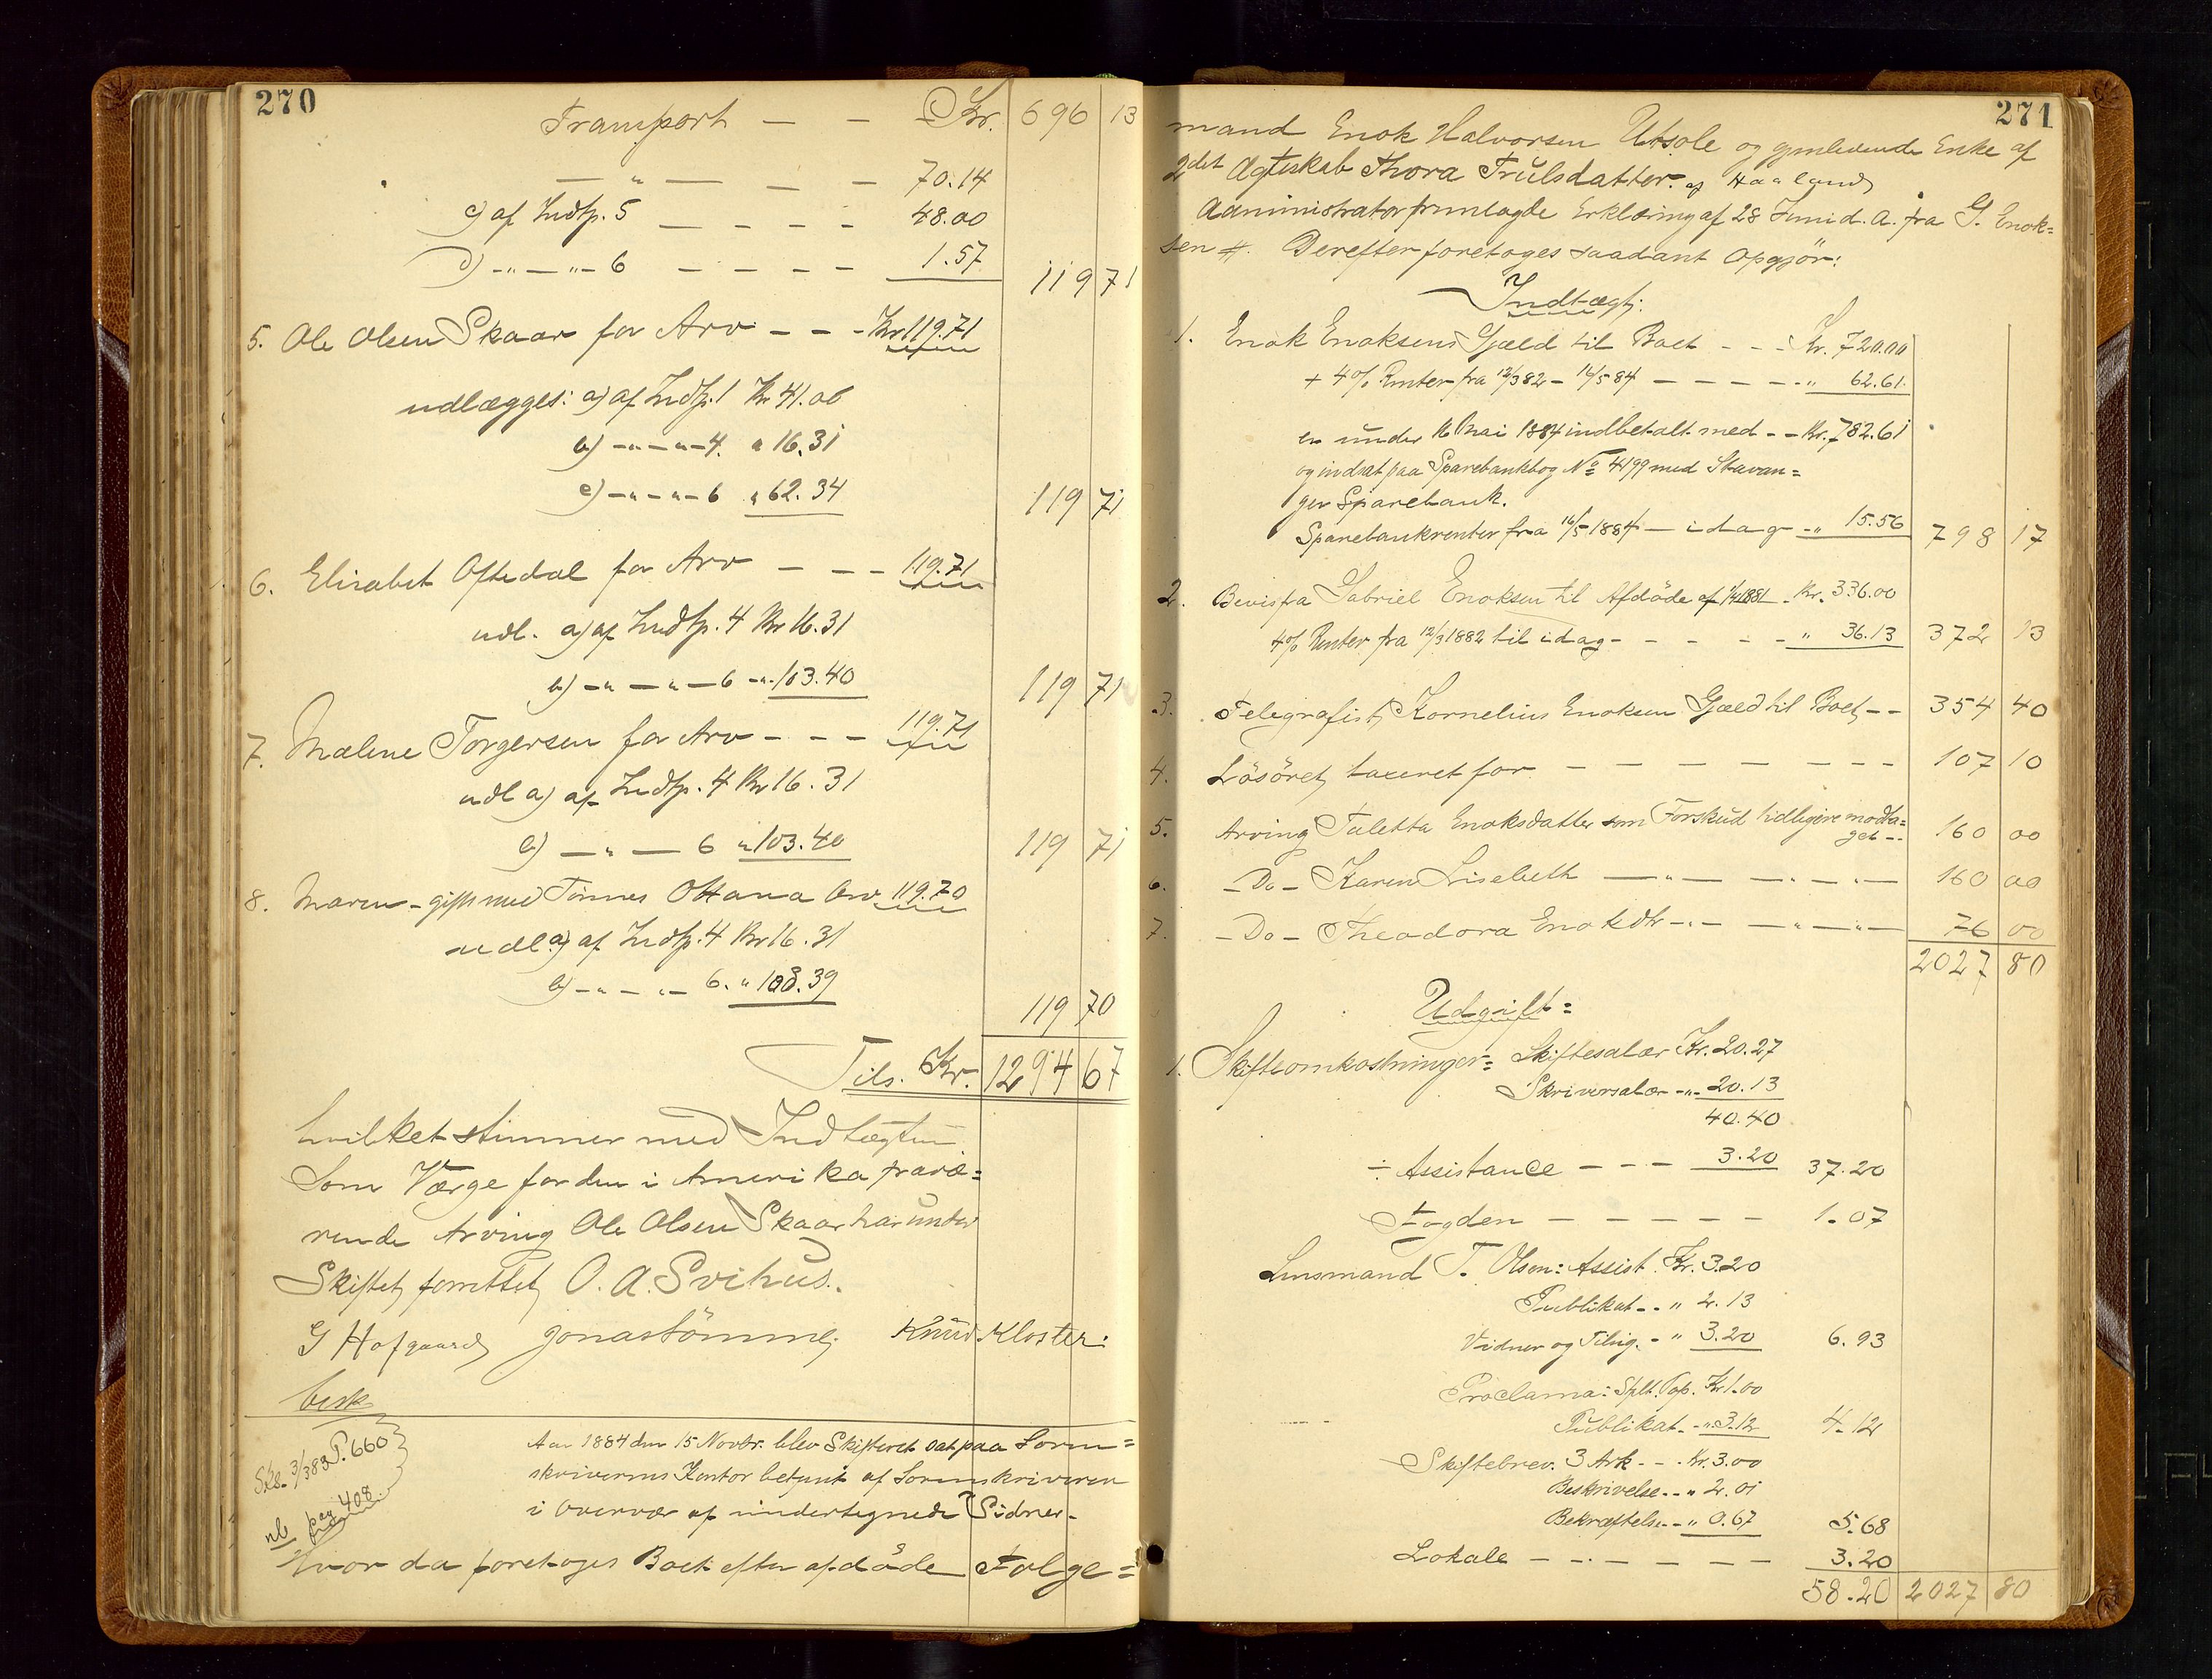 270
Transport — — Kr. 696 13
— " — — — 70.14
c) af Indtp. 5 — — — — 48.00
d) -"- — "- 6 — — — — 1.57 119 71
5. Ole Olsen Skaar for Arv — — - Kr 119.71
udlægges: a) af Indtp. 1 Kr 41.06
b) —"—"—4. " 16.31
c) —"—"—6 " 62.34 119 71
6. Elisabet Oftedal for Arv — — — 119.71
udl. a) af Indtp. 4 Kr 16.31
b) —"—"—6 —"- 103.40 119 71
7. Malene Torgersen for Arv — — — 119.71
udl a) af Indtp. 4 Kr 16.31
b) —"— 6 " 103.40 119 71
8. Maren - gift med Tönnes Ottana Arv. 119.70
udl. a) af Indtp. 4 Kr 16.31
b) —"—"— 6. " 103.39
119 70
Tils. Kr. 1294 67
hvilket stimmer med Indtægten
Som Værge for den i Amerika fravæ=
rende Arving Ole Olsen Skaar har under
Skiftet forrettet O. A. Svihus.
G Hofgaard Jonas Tömme, Knud Kloster.
besk
Skf. 3/383 P. 660
nb pag 408
Aar 1884 den 15 Novbr. blev Skifteret sat paa Soren=
skriverens Kontor betjent af Sorenskriveren
i Overvær af undertegnede Vidner.
Hvor da foretoges Boet efter afdöde Folge=
271
mand Enok Halvorsen Utsole og gjenlevende Enke af
2det Ægteskab Thora Trulsdatter. af Haaland
Administrator fremlagde Erklæring af 28 Juni d. A. fra G. Enok=
sen #. Derefter foretoges saadant Opgjör:
Indtægt:
1. Enok Enoksens Gjæld til Boet - - - Kr. 720.00
+ 4% Renter fra 12/3 82 - 16/5 84 — — — — — " 62.61.
er under 16 Mai 1884 indbetalt med - - Kr. 782.61
og indsat paa Sparebankbog No 4199 med Stavan=
ger Sparebank.
Sparebankrenter fra 16/5 1884 — idag — " 15.56 798 17
2. Bevis fra Gabriel Enoksen til Afdöde af 1881 - Kr. 336.00
4% Renter fra 12/3 1882 til idag - - - - - " 36.13 372 13
3. Telegrafist Kornelius Enoksen Gjæld til Boet - - 354 40
4. Lösöret taxeret for — — — — — — — 107 10
5. Arving Taletta Enoksdatter som Forskud tidligere modta=
get - - 160 00
6. — Do — Karen Lisebeth —"— —"—"— 160 00
7. — Do — Theodora Enoksdtr -"— —"—"— 76 00
2027 80
Udgift =
1. Skifteomkostninger = Skiftesalær Kr. 20.27
Skriversalær -"- 20.13
40.40
÷ Assistance — — — 3.20 37.20
Fogden — — — — — 1.07
Lensmand T. Olsen: Assist. Kr. 3.20
Publikat - - " 2.13
Vidner og Tilsig. - " 3.20 6.93
Proclama: Splt. Pap. Kr 1.00
Publikat - " 3.12 4.12
Skiftebrev. 3 Ark - - . Kr. 3.00
Beskrivelse - - " 2.01
Bekræftelse - - " 0.67 5.68
Lokale — — — — — — 3.20
58.20 2027 80